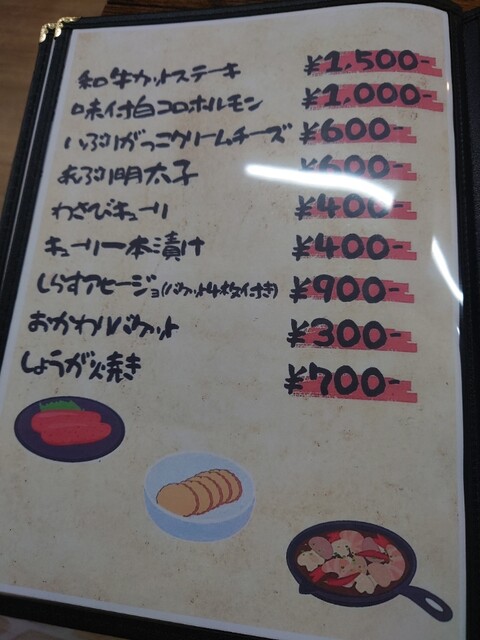 和牛カットステーキ ¥1,500-
味付白コロホルモン ¥1,000-
いぶりがっこクリームチーズ ¥600-
あぶり明太子 ¥600-
わさびキューリ ¥400-
キューリ一本漬け ¥400-
しらすアヒージョ(バケット4枚付き) ¥900-
おかわりバケット ¥300-
しょうが焼き ¥700-